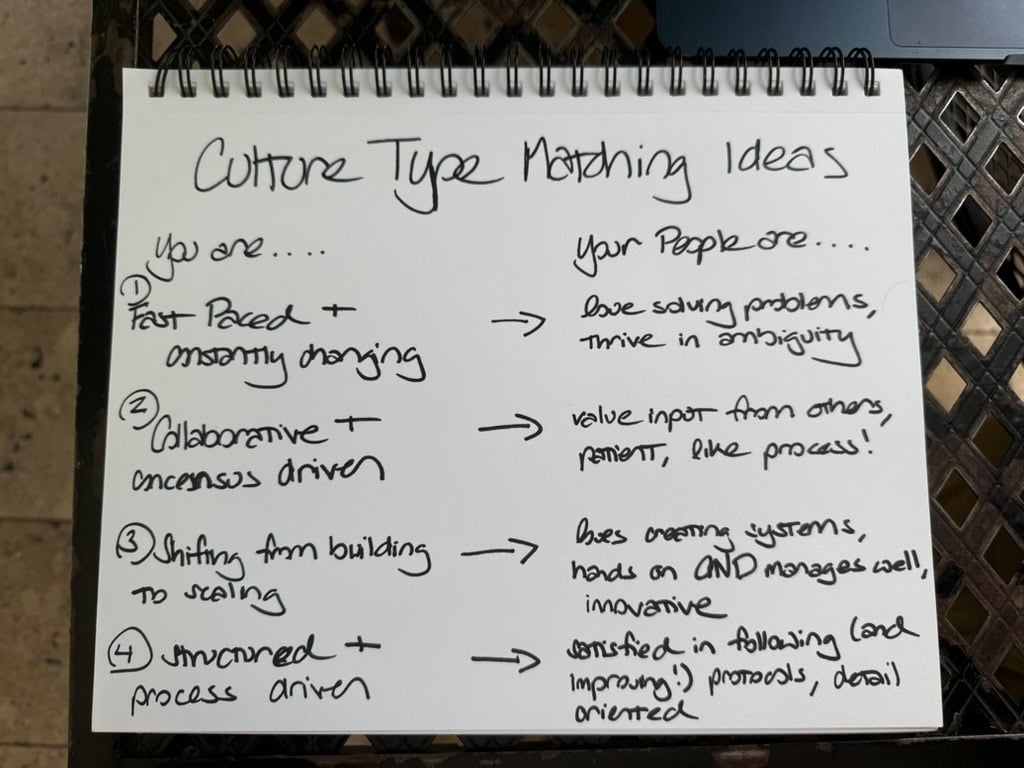 Culture Type Matching Ideas
you are.....
your People are....
①
Fast Paced +
constantly changing
→
love solving problems,
thrive in ambiguity
②
Collaborative +
concensus driven
→
value input from others,
patient, like process!
③ Shifting from building
to scaling
→
loves creating systems,
hands on AND manages well,
innovative
④ structured +
process driven
→
satisfied in following (and
improving!) protocols, detail
oriented